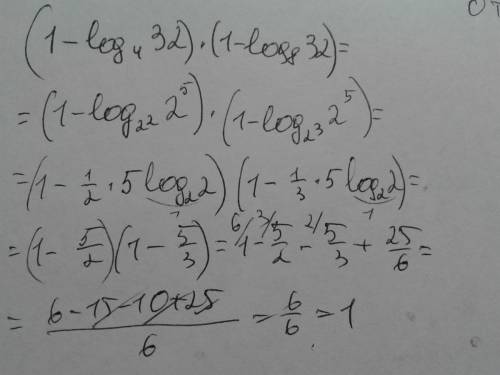 От
(1 - log₄ 32) · (1 - log₈ 32) =
= (1 - log_{2²} 2⁵) · (1 - log_{2³} 2⁵) =
= (1 - 1/2 · 5 log₂ 2) (1 - 1/3 · 5 log₂ 2) =
1 1
= (1 - 5/2) (1 - 5/3) = ⁶⁄1 - ³⁄5/2 - ²⁄5/3 + 25/6 =
= (6 - 15 - 10 + 25)/6 = 6/6 = 1